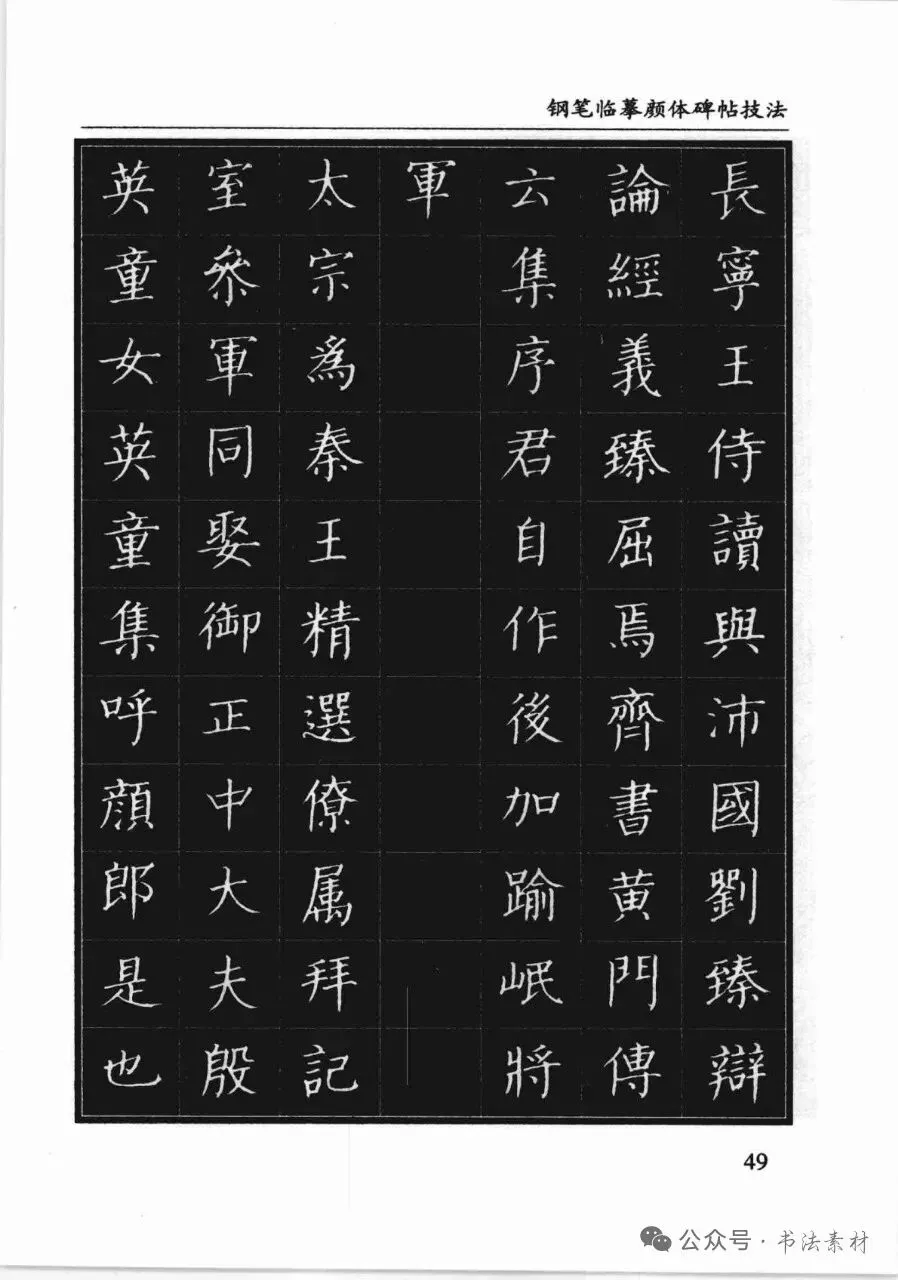 钢笔临摹颜体碑帖技法
長寧王侍讀與沛國劉臻辯
論經義臻屈焉齊書黄門傳
云集序君自作後加踰岷將
軍
太宗為秦王精選僚属拜記
室叅軍同娶御正中大夫殷
英童女英童集呼顔郎是也
49
公众号·书法素材